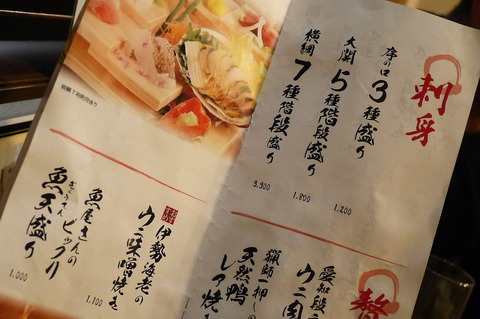 刺身
序の口
3種盛り
1.200
大関
5種階段盛り
1.800
横綱
7種階段盛り
3.300
横綱7種階段盛り
贅
愛知段戸
ウニ肉
猟師一押しの
天然鴨レア焼き
伊勢海老の
ウニ味噌焼き
1.100
魚屋さんのビックリ
ぎょてん
魚天盛り
1.000